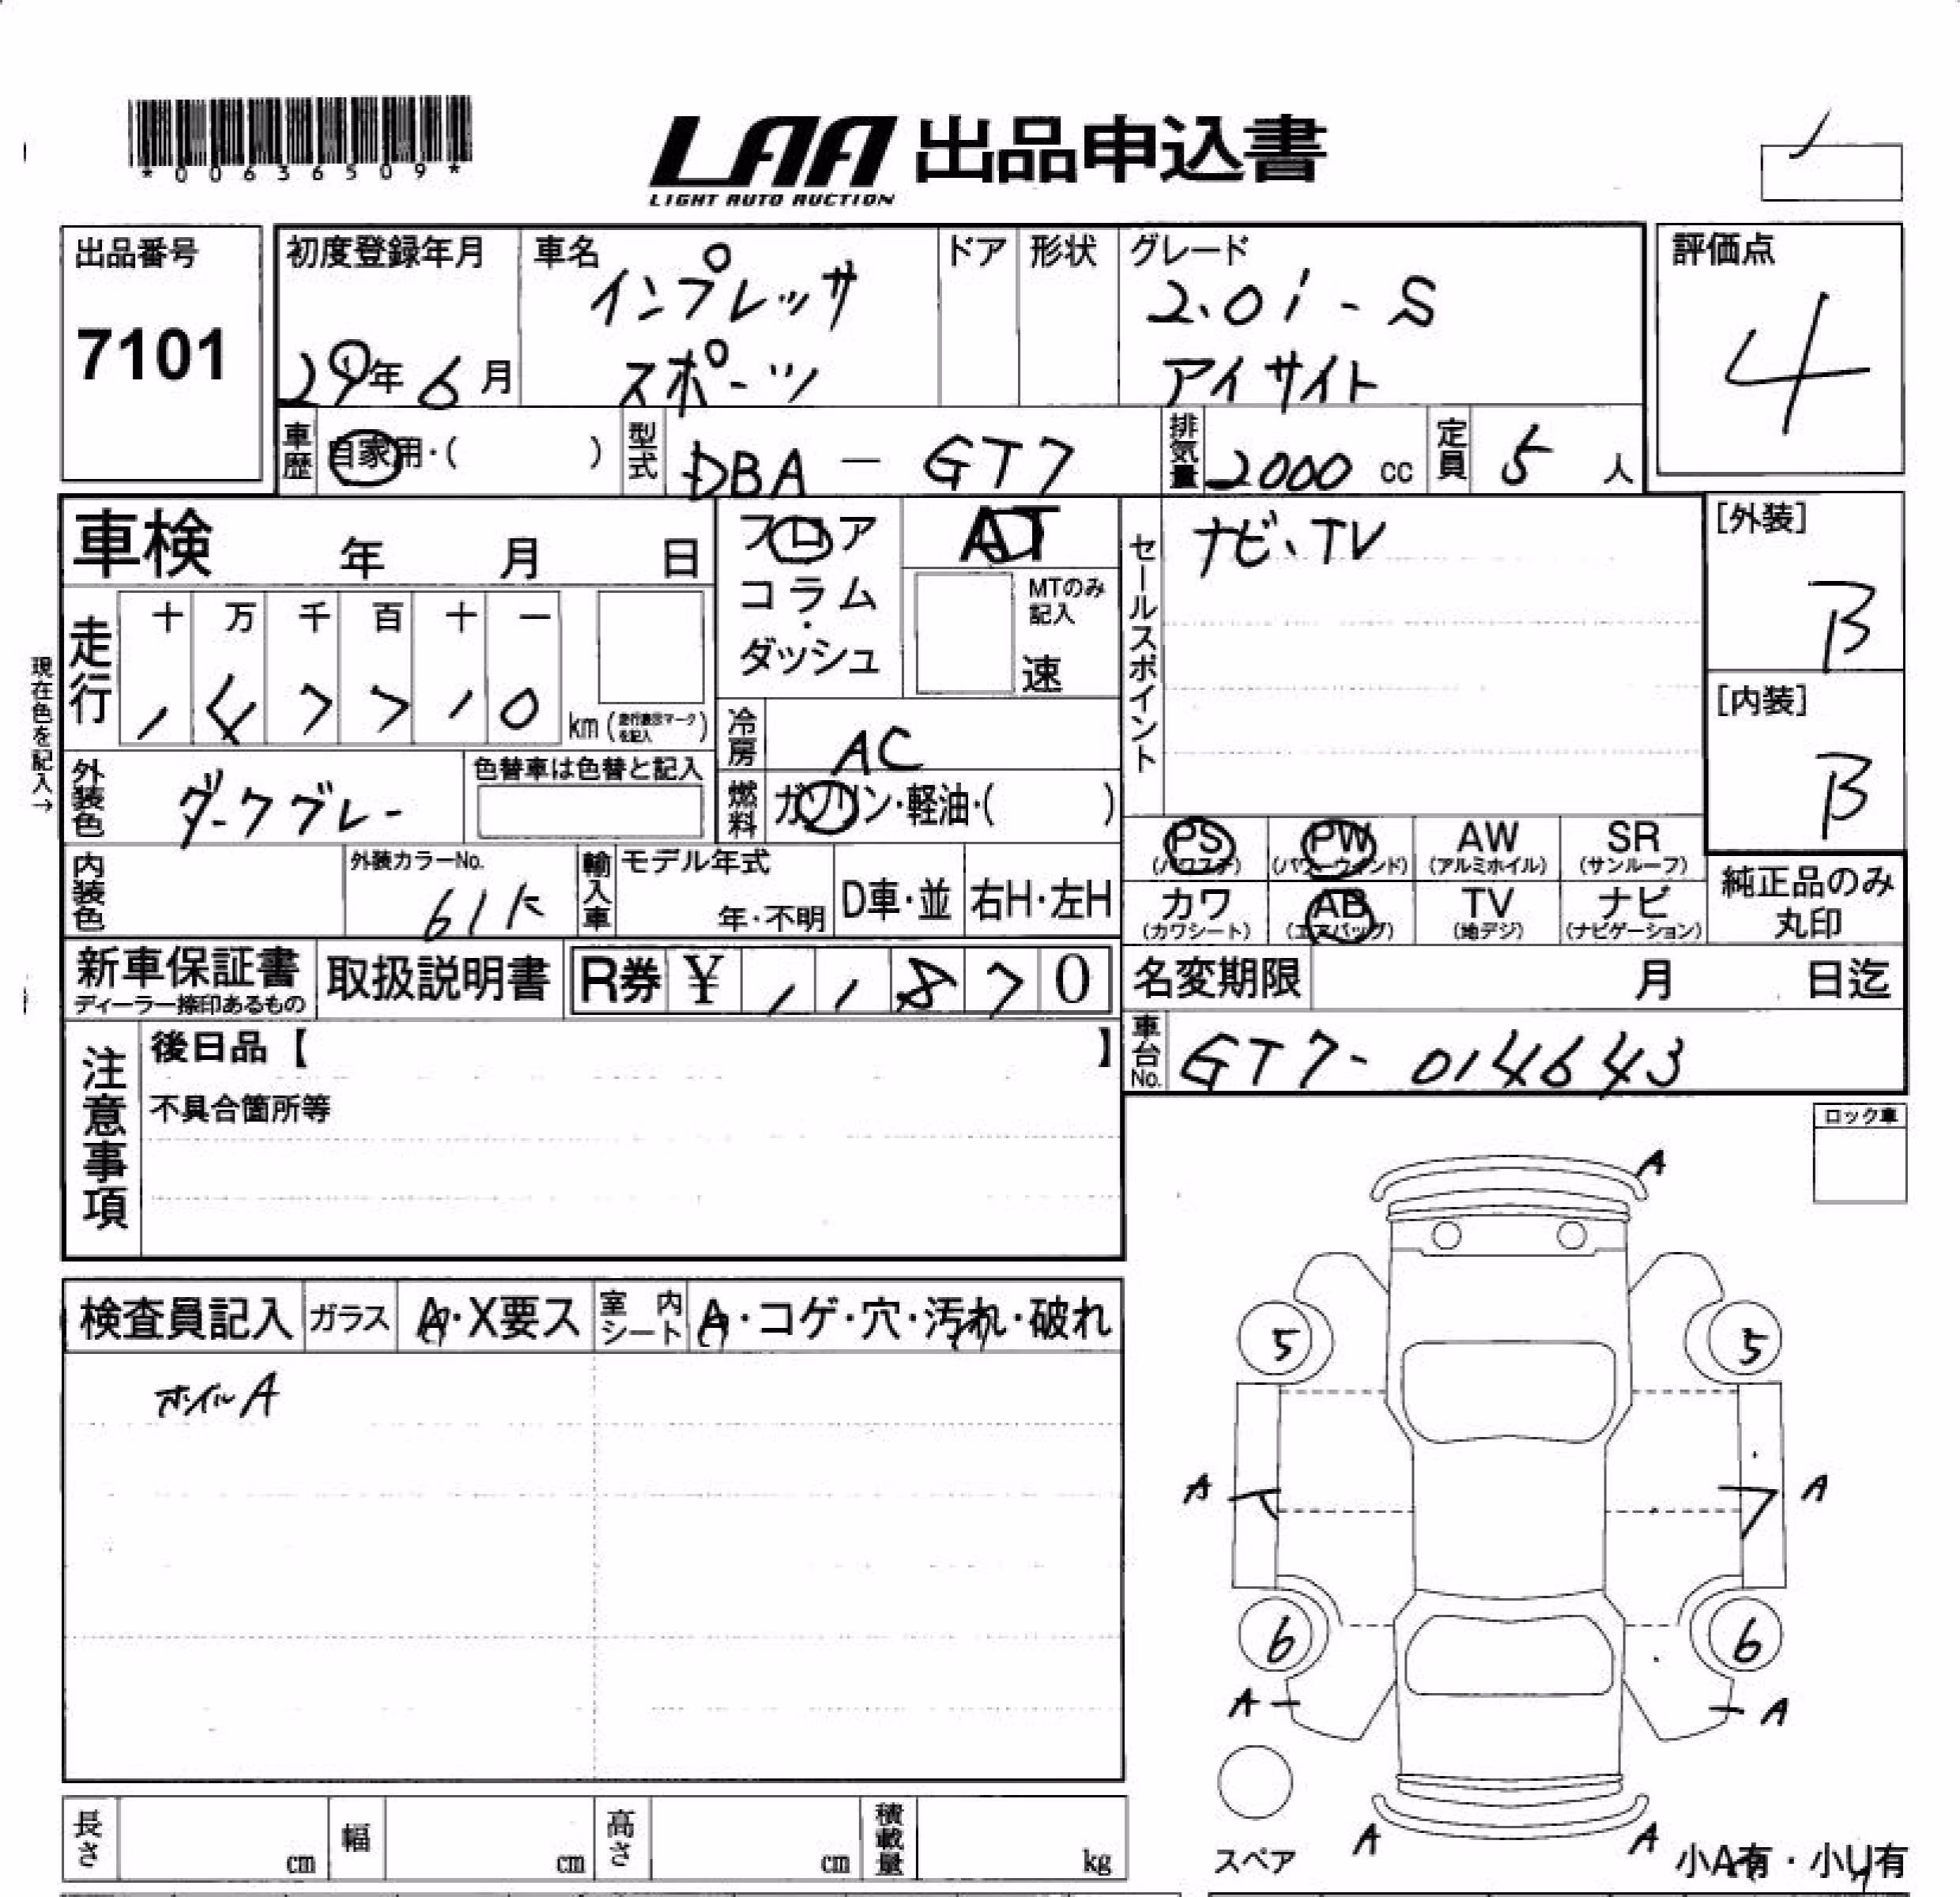 *00636509*
LAA 出品申込書
LIGHT AUTO AUCTION
出品番号
7101
初度登録年月
29年6月
車名
インプレッサ
スポーツ
ドア
形状
グレード
2.0i-S
アイサイト
評価点
4
車歴
自家用・( )
型式
DBA-GT7
排気量
2000 cc
定員
5人
車検 年 月 日
フロア
コラム
・
ダッシュ
AT
MTのみ
記入
速
セールスポイント
ナビ、TV
[外装]
B
[内装]
B
現在色を記入→
走行
十 万 千 百 十 一
1 4 7 7 1 0
km (走行表示マークを記入)
冷房
AC
外装色
ダークグレー
色替車は色替と記入
燃料
ガソリン・軽油・( )
PS
(パワステ)
PW
(パワーウインド)
AW
(アルミホイル)
SR
(サンルーフ)
カワ
(カワシート)
AB
(エアバッグ)
TV
(地デジ)
ナビ
(ナビゲーション)
純正品のみ
丸印
内装色
外装カラーNo.
61K
輸入車
モデル年式
年・不明
D車・並
右H・左H
新車保証書
ディーラー捺印あるもの
取扱説明書
R券 ¥ 1 1 8 7 0
名変期限 月 日迄
車台No.
GT7-014643
注意事項
後日品【 】
不具合箇所等
ロック車
検査員記入
ガラス
A・X要ス
室内
シート
A・コゲ・穴・汚れ・破れ
ホイルA
A
5
5
A
A
6
6
A
A
A
A
スペア
小A有・小U有
長さ
cm
幅
cm
高さ
cm
積載量
kg